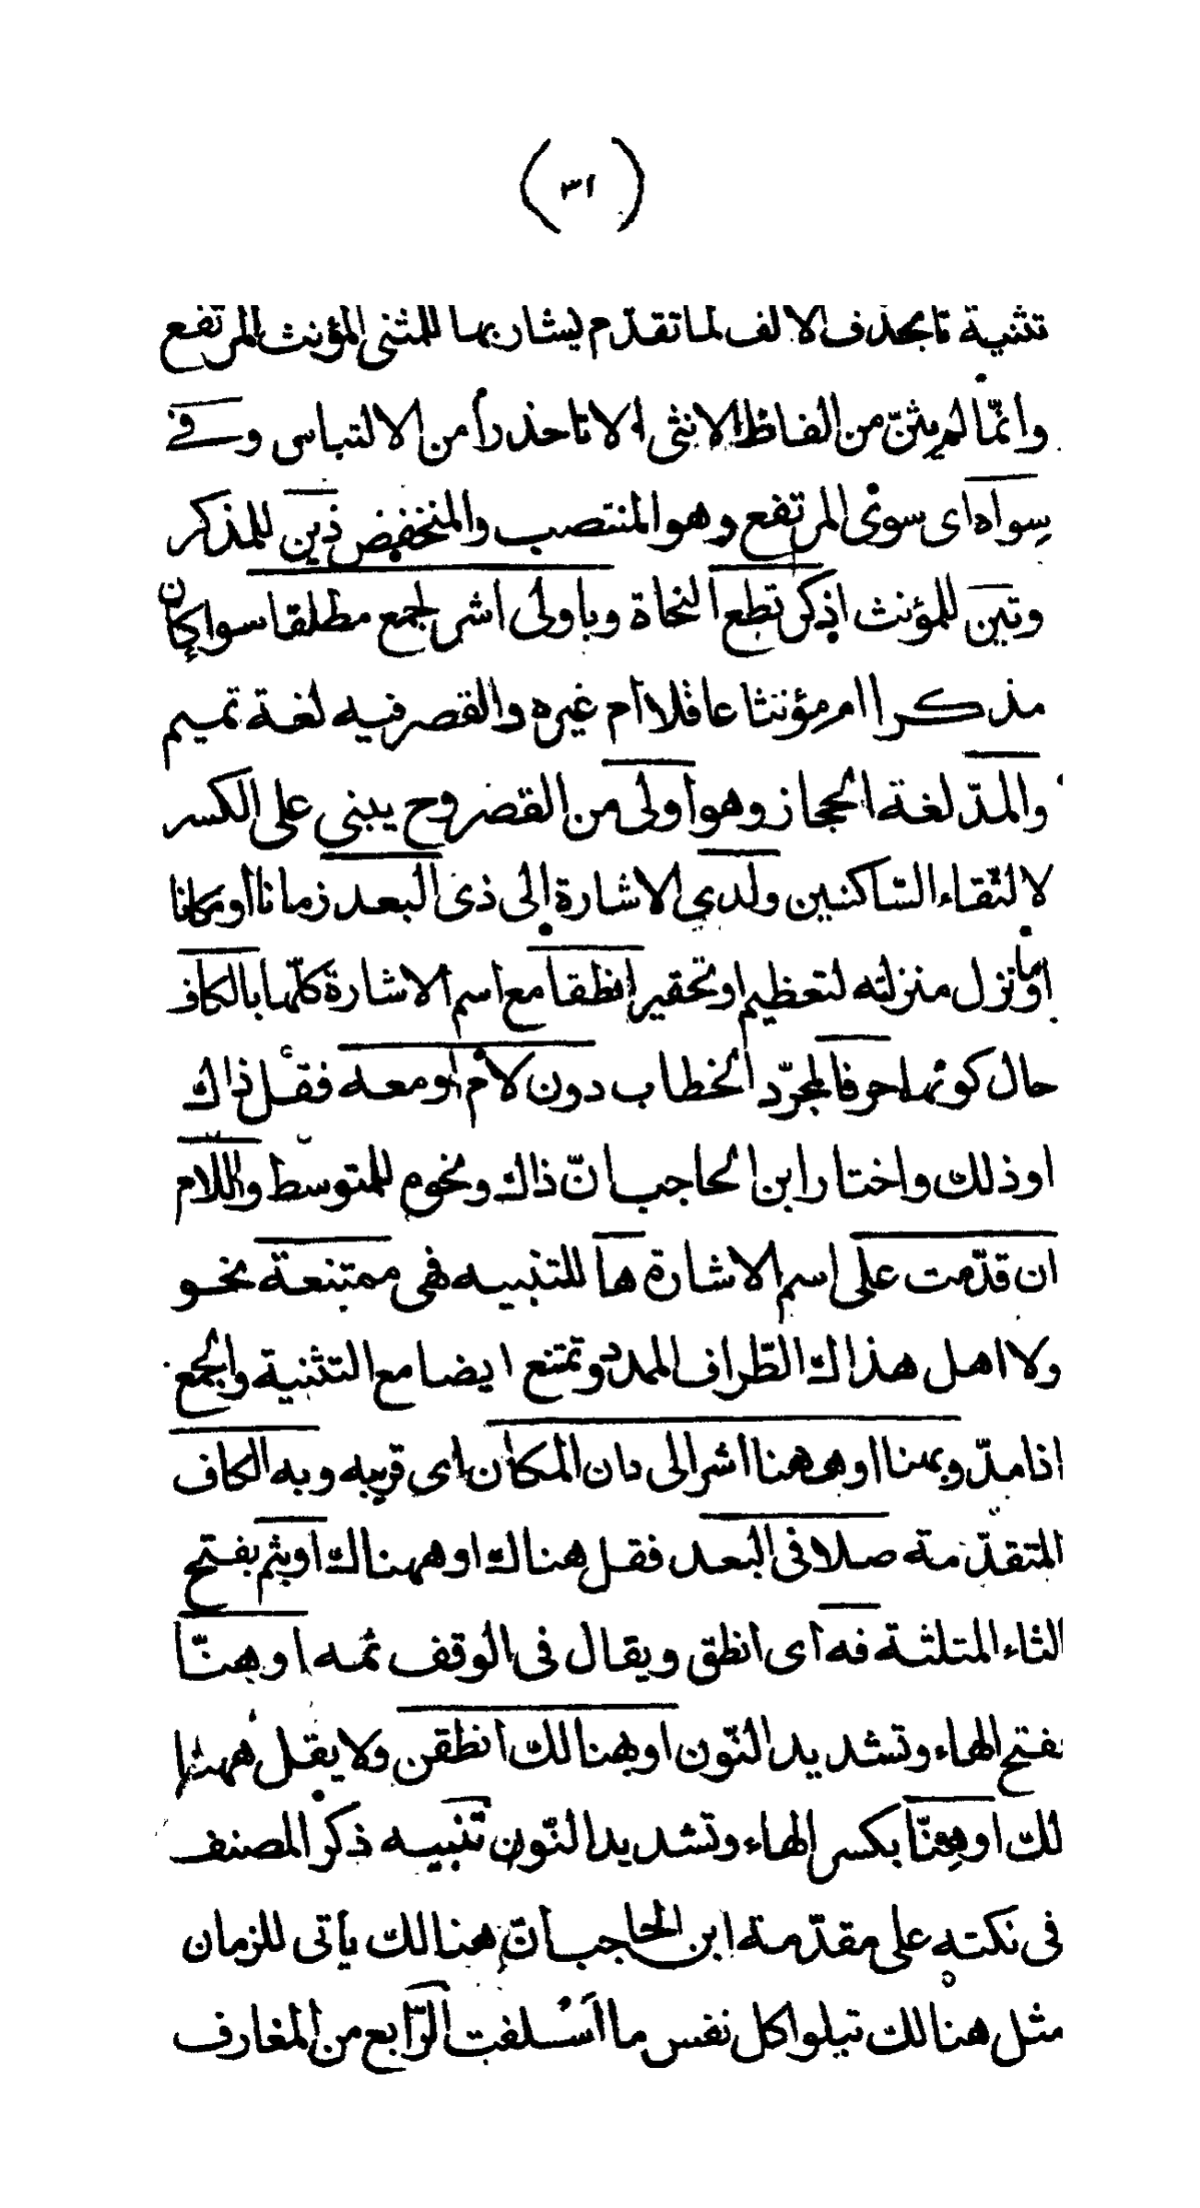 (٣١)
تثنية تا بحذف الالف لما تقدّم يشار بها للمثنى المؤنث المرتفع
وانمّا لم يثنّ من الفاظ الانثى الا تا حذرا من الالتباس وفي
سواه اى سوى المرتفع وهو المنتصب والمنخفض ذين للمذكر
وتين للمؤنث اذكر تطع النحاة وباولى اشر لجمع مطلقا سوا كان
مذكرا ام مؤنثا عاقلا ام غيره والقصر فيه لغة تميم
والمدّ لغة الحجاز وهو اولى من القصر وح يبنى على الكسر
لالتقاء السّاكنين ولدى الاشارة الى ذى البعد زمانا او مكانا
او ما نزل منزلته لتعظيم او تحقير انطقا مع اسم الاشارة كلّها بالكاف
حال كونها حرفا لمجرّد الخطاب دون لام او معه فقل ذاك
او ذلك واختار ابن الحاجب انّ ذاك ونحوه للمتوسّط واللام
ان قدّمت على اسم الاشارة ها للتنبيه فهى ممتنعة نحو
ولا اهل هذاك الطّراف الممدد وتمتنع ايضا مع التثنية والجمع
اذا مدّ وبهنا او ههنا اشر الى دان المكان اى قريبه وبه الكاف
المتقدّمة صلا فى البعد فقل هناك او ههناك او بثم بفتح
الثاء المثلثة فه اى انطق ويقال فى الوقف ثمه او هنّا
بفتح الهاء وتشديد النّون او بهنالك انطقن ولا يقل ههنا
لك او هنّا بكسر الهاء وتشديد النّون تنبيه ذكر المصنف
فى نكته على مقدّمة ابن الحاجب انّ هنالك يأتى للزمان
مثل هنالك تبلوا كل نفس ما اسلفت الرّابع من المعارف